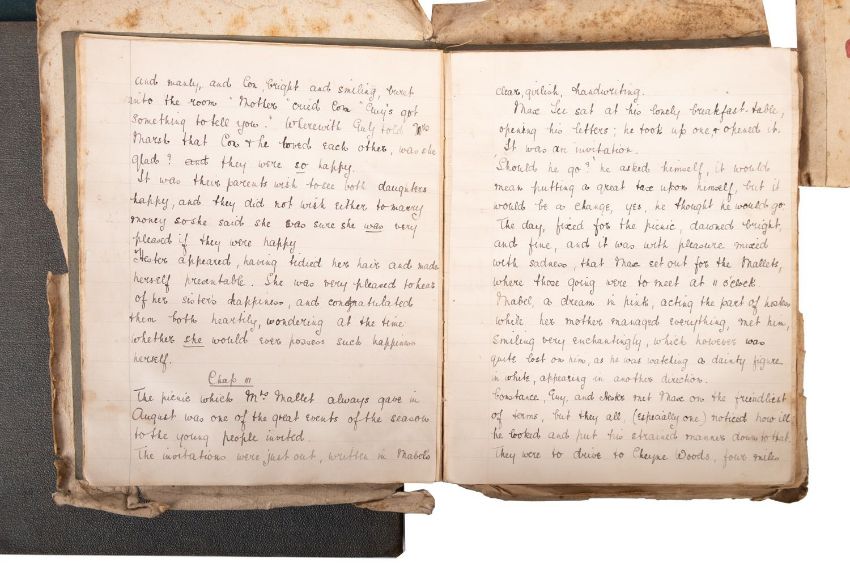 and manly, and Con, bright and smiling, burst
into the room "Mother" cried Con "Guy's got
something to tell you." Wherewith Guy told Mrs
Marsh that Con & he loved each other, was she
glad? and they were so happy.
It was their parents wish to see both daughters
happy, and they did not wish either to marry
money so she said she was sure she was very
pleased if they were happy
Hester appeared, having tidied her hair and made
herself presentable. She was very pleased to hear
of her sister's happiness, and congratulated
them both heartily, wondering at the time
whether she would ever possess such happiness
herself.
Chap III
The picnic which Mrs Mallet always gave in
August was one of the great events of the season
to the young people invited.
The invitations were just out, written in Mabel's
clear, girlish, handwriting.
Max Lee sat at his lonely breakfast-table,
opening his letters; he took up one, & opened it.
It was an invitation.
Should he go? he asked himself, it would
mean putting a great tax upon himself, but it
would be a change, yes, he thought he would go
The day, fixed for the picnic, dawned bright,
and fine, and it was with pleasure mixed
with sadness, that Max set out for the Mallets,
where those going were to meet at 11 o'clock.
Mabel, a dream in pink, acting the part of hostess
while her mother managed everything, met him,
smiling very enchantingly, which however was
quite lost on him, as he was watching a dainty figure
in white, appearing in another direction.
Constance, Guy, and Hester met Max on the friendliest
of terms, but they all, (especially one) noticed how ill
he looked and put his strained manner down to that.
They were to drive to Cheyne Woods, four miles